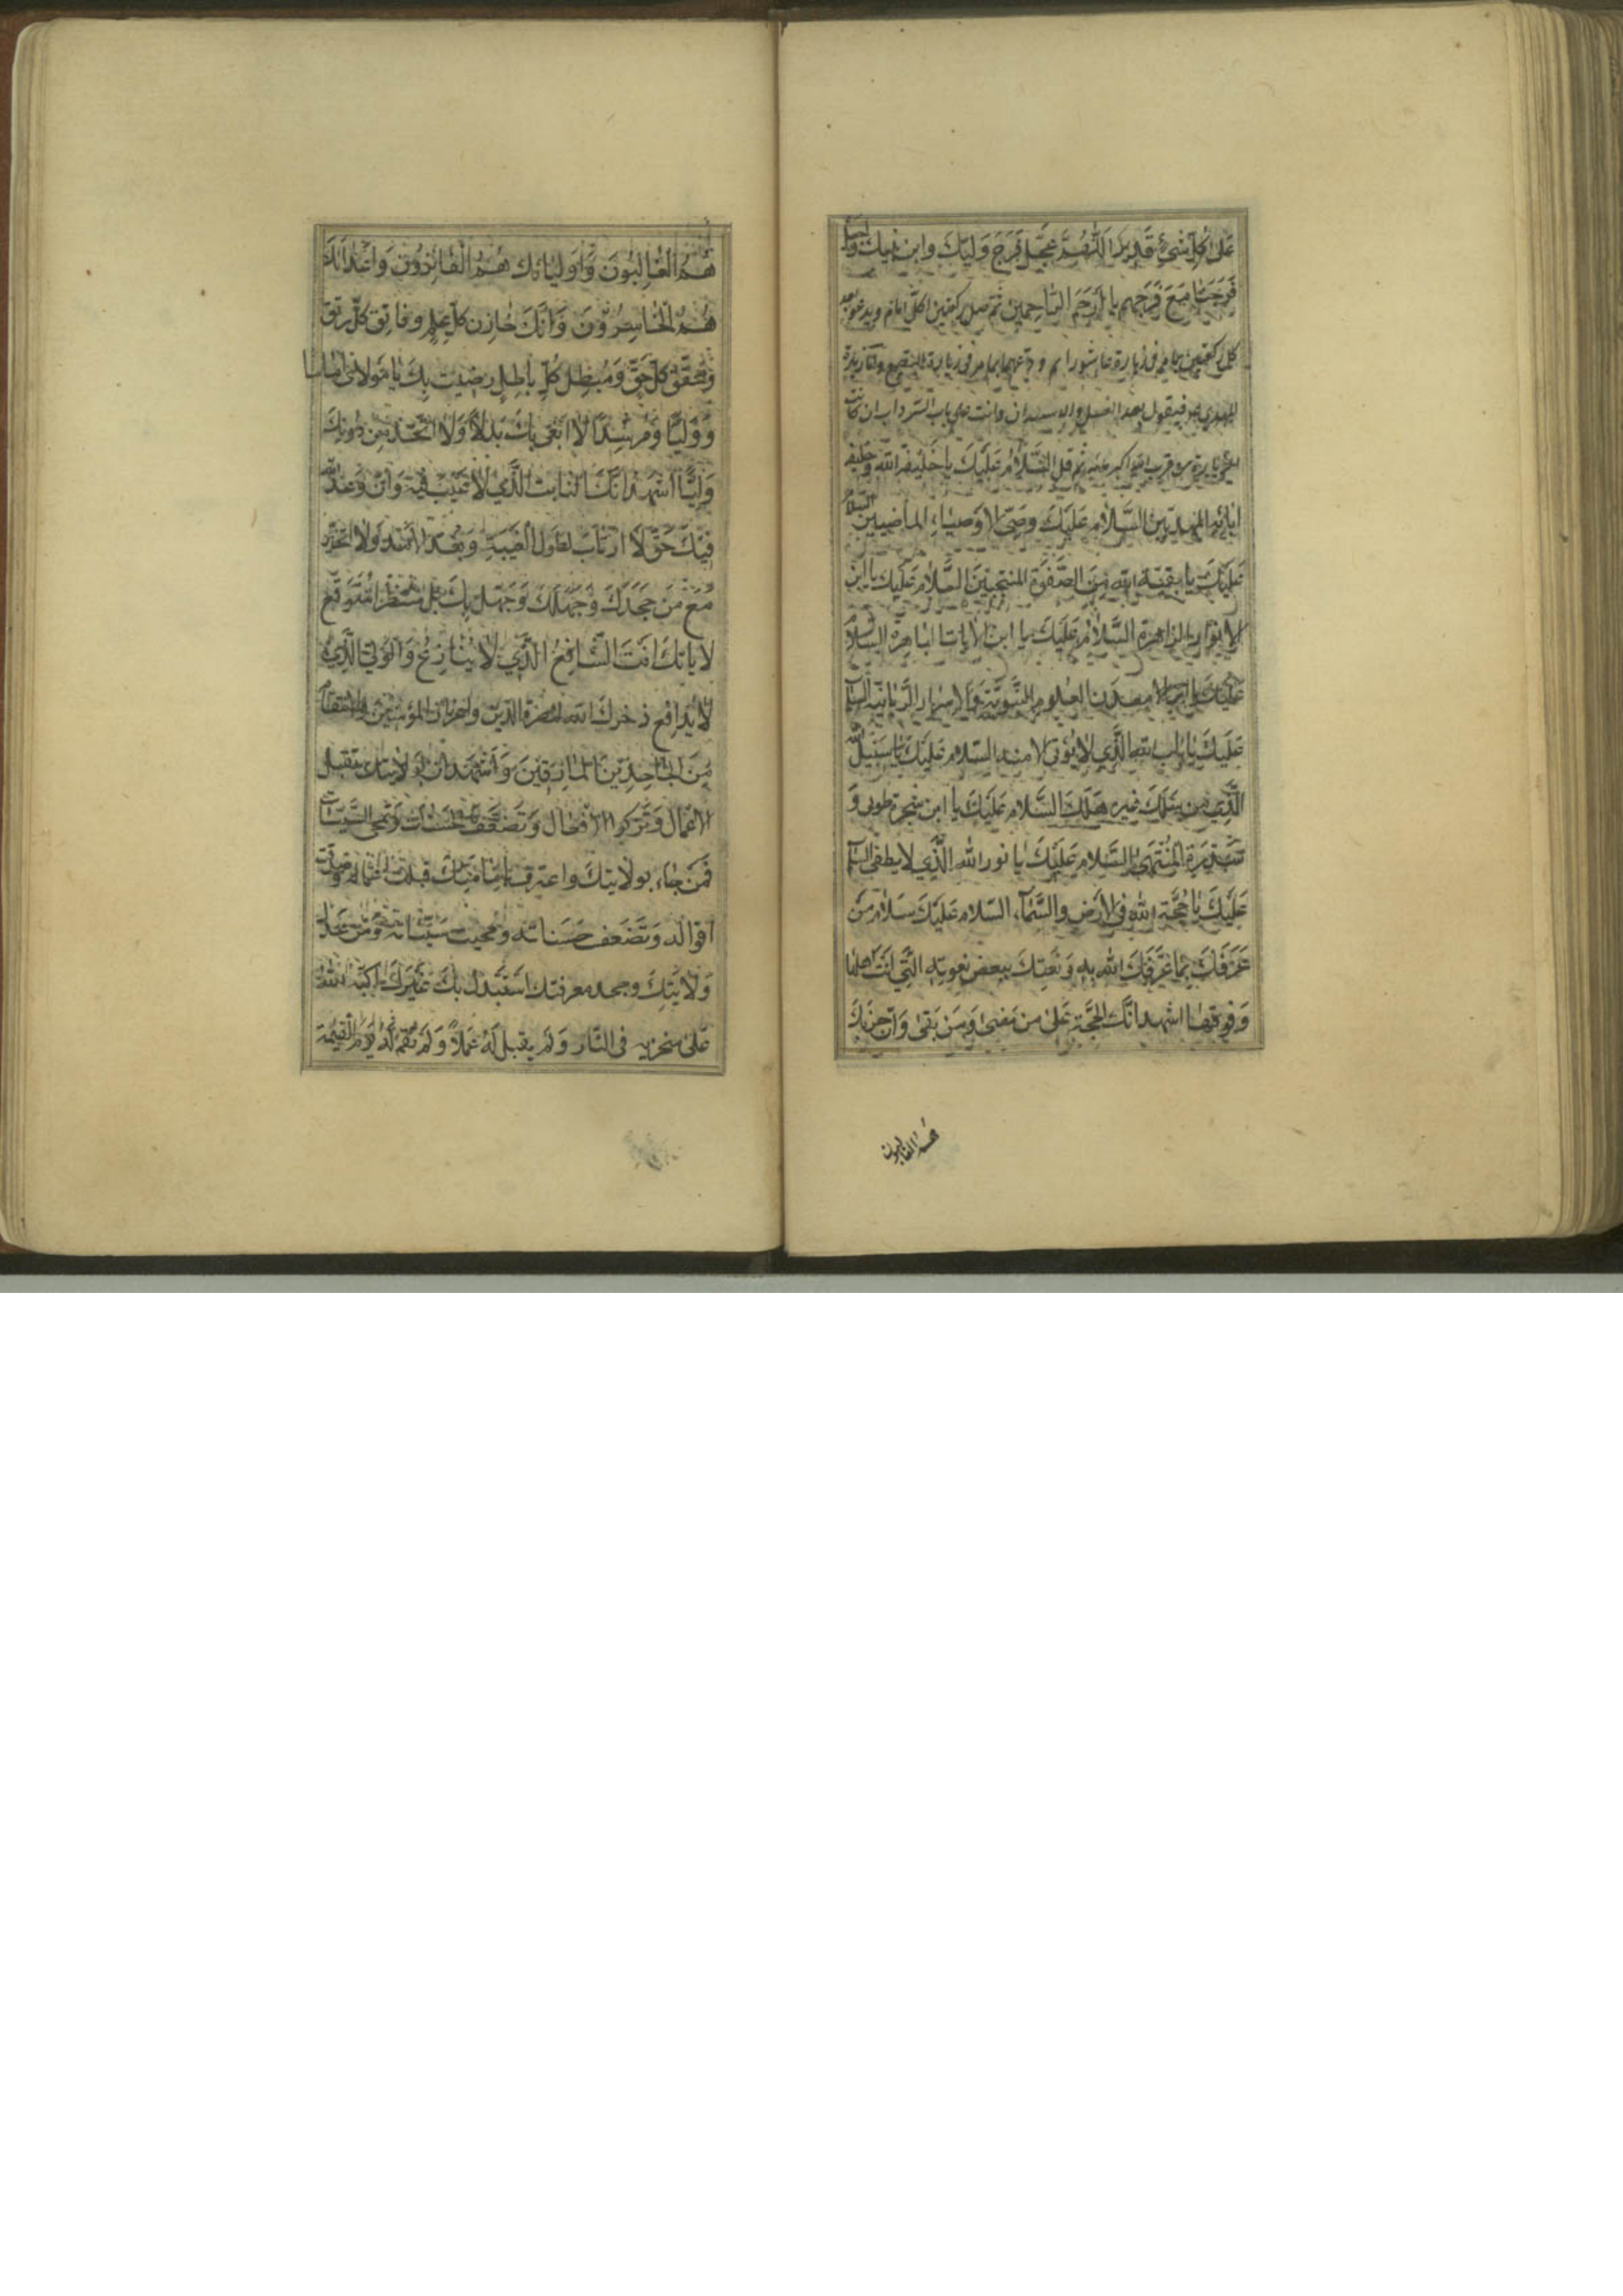 عَلىٰ كُلِّ شَيْءٍ قَدِيرٌ اَللّٰهُمَّ عَجِّلْ فَرَجَ وَلِيِّكَ وابن وليك
فَرَجَنَا مَعَ فَرَجِهِم يا اَرْحَمَ الرّاحِمِينَ ثمّ صل ركعتين لكلّ امام ويدعو بعد
كل ركعتين بما مر فى زيارة عاشورا
المهدى فيقول بعد الغسل وانت على باب السرداب ان كانت
ثم قل السَّلامُ عَلَيْكَ يا خَليفة الله وخليفة
ابائه المهديّين السَّلامُ عَلَيْكَ يا وصىّ الاوصياء الماضيين السلام
عَلَيْكَ يا بقيّة الله مِنَ الصَّفْوَةِ المنتجبينَ السَّلامُ عَلَيْكَ يا ابن
الانوار الزاهرة السَّلامُ عَلَيْكَ يا ابن الايات الباهرة السلام
عَلَيْكَ يا معدن العلوم النَّبَوِيَّة وَالاسرار الرَّبّانيّة السلام
عَلَيْكَ يا باب الله الَّذِي لا يُؤتى الا منه السّلام عَلَيْكَ يا سَبيلَ الله
الَّذي مَن سَلَكَ غيره هَلَكَ السَّلام عَلَيْكَ يا ابن شجرة طوبى وَ
سِدْرَة المُنْتَهىٰ السَّلام عَلَيْكَ يا نور الله الَّذي لا يطفى السلام
عَلَيْكَ يا حُجَّة الله فى الارض والسَّمآء السّلام عَلَيْكَ سَلامُ مَن
عَرَفَكَ بِما عَرَّفَكَ الله بِهِ وَنَعَتَكَ ببعض نعوته الَّتي انت اهلها
وَفوقها اشهد انّك الحجَّة عَلىٰ من مضىٰ وَمَن بَقىٰ وَانّ حِزبَكَ
هم الغالبون
هُمُ الْغالِبُونَ وَاولياءَك هُمُ الْفائِزُونَ وَاعداءَكَ
هُمُ الْخاسِرُونَ وَانَّكَ خازِن كلّ عِلم وفاتِق كلّ رتق
وَمحقّق كُلّ حَقّ وَمُبطِل كُلّ باطِل رضيت بك يا مَولاى اماما
وَوَلِيًّا وَمُرشِدًا لا ابتغى بك بَدلًا وَلا اتّخذ من دونك
وَلِيًّا اشهد انّك الثابت الَّذي لا عَيْب فيه وَانّ وَعْد الله
فيك حَقّ لا ارتاب لطول الغيبة وَبُعد الامد وَلا اتحيّر
مَعَ مَن جَحَدَكَ وَجَهِلَكَ وَجَهِلَ بِكَ بل منتظر متوقّع
لاياتك انتَ الشّافِعُ الَّذي لا يُنازَعُ وَالوَلىّ الَّذي
لا يُدافَع ذخرك الله لنصرة الدّين واعزاز المؤمنين والانتقام
مِنَ الجاحِدينَ المارِقينَ وَاَشْهَد انّ بولايتك تقبل
الاعمال وَتُزكى الافعال وَتضعّف الحسنات وَتمحى السَّيّئات
فَمَن جاء بولايتك واعترف بامامتك قبلت اعماله وصدّقت
اقواله وَتضَعف حَسَناته ومحيت سَيّئاته وَمَن عدل
وَلايَتِكَ وجحد معرفتك استبدل بك غَيرَكَ كبّه الله
عَلىٰ منخريه فى النّار وَلَم يقبل لَهُ عَمَلًا وَلَم يُقِم لَهُ يَومَ القيٰمة